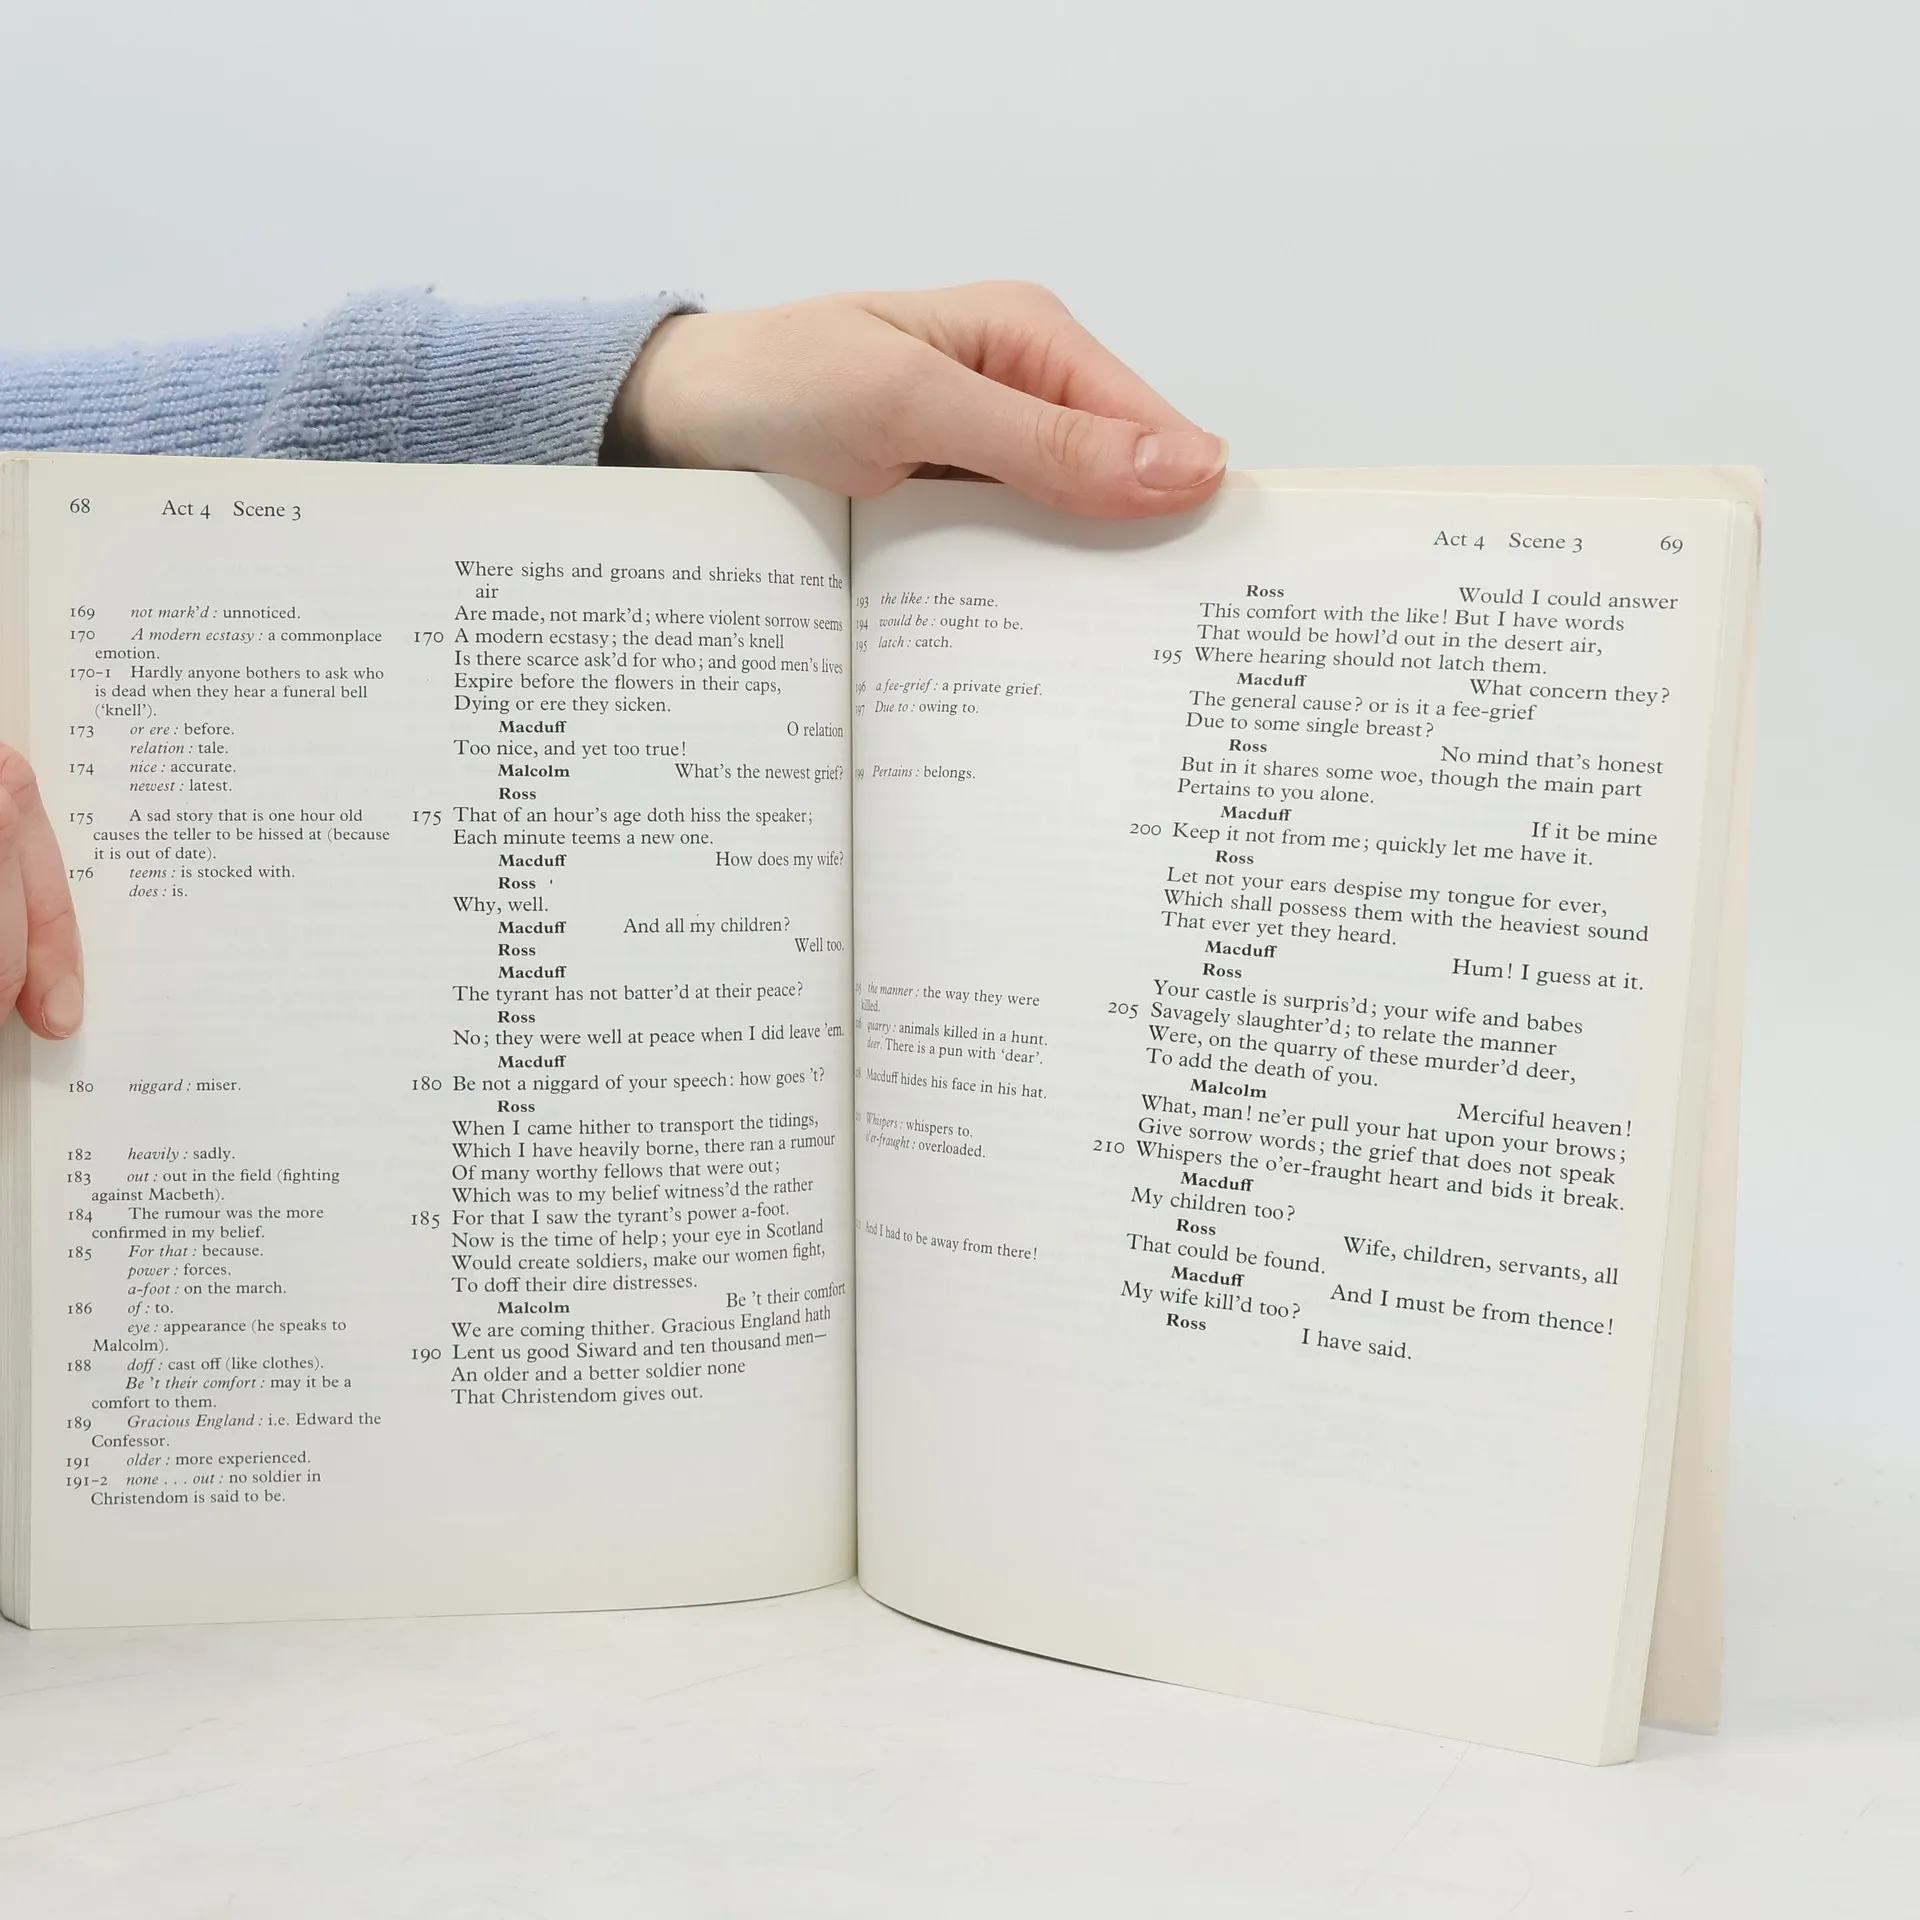 68 Act 4 Scene 3
169 not mark'd : unnoticed.
170 A modern ecstasy : a commonplace
emotion.
170-1 Hardly anyone bothers to ask who
is dead when they hear a funeral bell
('knell').
173 or ere : before.
relation : tale.
174 nice : accurate.
newest : latest.
175 A sad story that is one hour old
causes the teller to be hissed at (because
it is out of date).
176 teems : is stocked with.
does : is.
180 niggard : miser.
182 heavily : sadly.
183 out : out in the field (fighting
against Macbeth).
184 The rumour was the more
confirmed in my belief.
185 For that : because.
power : forces.
a-foot : on the march.
186 of : to.
eye : appearance (he speaks to
Malcolm).
188 doff : cast off (like clothes).
Be 't their comfort : may it be a
comfort to them.
189 Gracious England : i.e. Edward the
Confessor.
191 older : more experienced.
191-2 none . . . out : no soldier in
Christendom is said to be.
Where sighs and groans and shrieks that rent the
air
Are made, not mark'd; where violent sorrow seems
170 A modern ecstasy; the dead man's knell
Is there scarce ask'd for who; and good men's lives
Expire before the flowers in their caps,
Dying or ere they sicken.
Macduff O relation
Too nice, and yet too true!
Malcolm What's the newest grief?
Ross
175 That of an hour's age doth hiss the speaker;
Each minute teems a new one.
Macduff How does my wife?
Ross
Why, well.
Macduff And all my children?
Ross Well too.
Macduff
The tyrant has not batter'd at their peace?
Ross
No; they were well at peace when I did leave 'em.
Macduff
180 Be not a niggard of your speech: how goes 't?
Ross
When I came hither to transport the tidings,
Which I have heavily borne, there ran a rumour
Of many worthy fellows that were out;
Which was to my belief witness'd the rather
185 For that I saw the tyrant's power a-foot.
Now is the time of help; your eye in Scotland
Would create soldiers, make our women fight,
To doff their dire distresses.
Malcolm Be 't their comfort
We are coming thither. Gracious England hath
190 Lent us good Siward and ten thousand men—
An older and a better soldier none
That Christendom gives out.
Act 4 Scene 3 69
193 the like : the same.
194 would be : ought to be.
195 latch : catch.
196 a fee-grief : a private grief.
197 Due to : owing to.
199 Pertains : belongs.
the manner : the way they were
killed.
quarry : animals killed in a hunt.
deer. There is a pun with 'dear'.
Macduff hides his face in his hat.
Whispers : whispers to.
o'er-fraught : overloaded.
And I had to be away from there!
Ross Would I could answer
This comfort with the like! But I have words
That would be howl'd out in the desert air,
195 Where hearing should not latch them.
Macduff What concern they?
The general cause? or is it a fee-grief
Due to some single breast?
Ross No mind that's honest
But in it shares some woe, though the main part
Pertains to you alone.
Macduff If it be mine
200 Keep it not from me; quickly let me have it.
Ross
Let not your ears despise my tongue for ever,
Which shall possess them with the heaviest sound
That ever yet they heard.
Macduff Hum! I guess at it.
Ross
Your castle is surpris'd; your wife and babes
205 Savagely slaughter'd; to relate the manner
Were, on the quarry of these murder'd deer,
To add the death of you.
Malcolm Merciful heaven!
What, man! ne'er pull your hat upon your brows;
Give sorrow words; the grief that does not speak
210 Whispers the o'er-fraught heart and bids it break.
Macduff
My children too?
Ross Wife, children, servants, all
That could be found.
Macduff And I must be from thence!
My wife kill'd too?
Ross I have said.